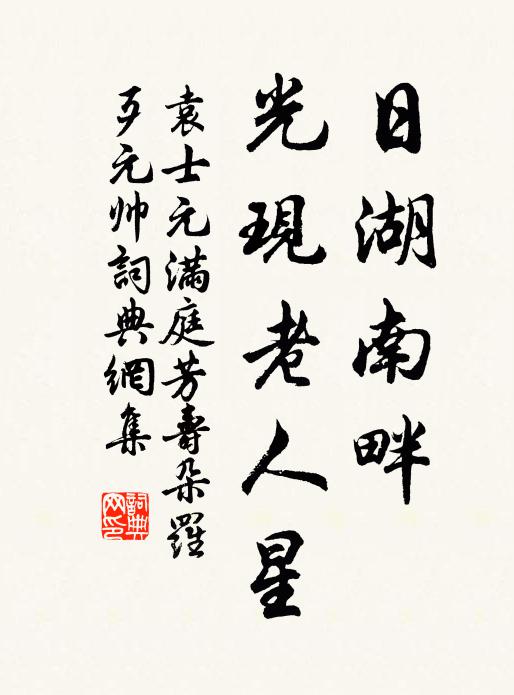 日湖南畔
光現老人星
袁士元滿庭芳壽朶羅
歹元帅詞典網集
詞典网印